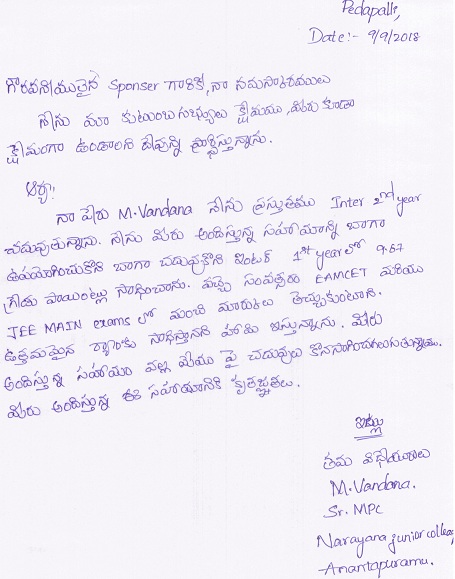 Pedapalli,
Date:- 9/9/2018
గౌరవనీయులైన Sponser గారికి, నా నమస్కారములు
నేను మా కుటుంబసభ్యులు క్షేమము, మీరు కూడా
క్షేమంగా ఉండాలని దేవున్ని ప్రార్థిస్తున్నాను.
ఆర్యా!
నా పేరు M.Vandana నేను ప్రస్తుతము Inter 2nd year
చదువుతున్నాను. నేను మీరు అందిస్తున్న సహాయాన్ని బాగా
ఉపయోగించుకొని బాగా చదువుకొని ఇంటర్ 1st year లో 9.67
గ్రేడు పాయింట్లు సాధించాను. వచ్చే సంవత్సరం EAMCET మరియు
JEE MAIN exams లో మంచి మార్కులు తెచ్చుకుంటాను.
ఉత్తమమైన ర్యాంకు సాధిస్తానని హామీ ఇస్తున్నాను. మీరు
అందిస్తున్న సహాయం వల్ల మేము పై చదువులు కొనసాగించగలుగుతున్నాము.
మీరు అందిస్తున్న ఈ సహాయానికి కృతజ్ఞతలు.
ఇట్లు
తమ విధేయురాలు
M.Vandana.
Sr. MPC
Narayana junior college,
Anantapuramu.